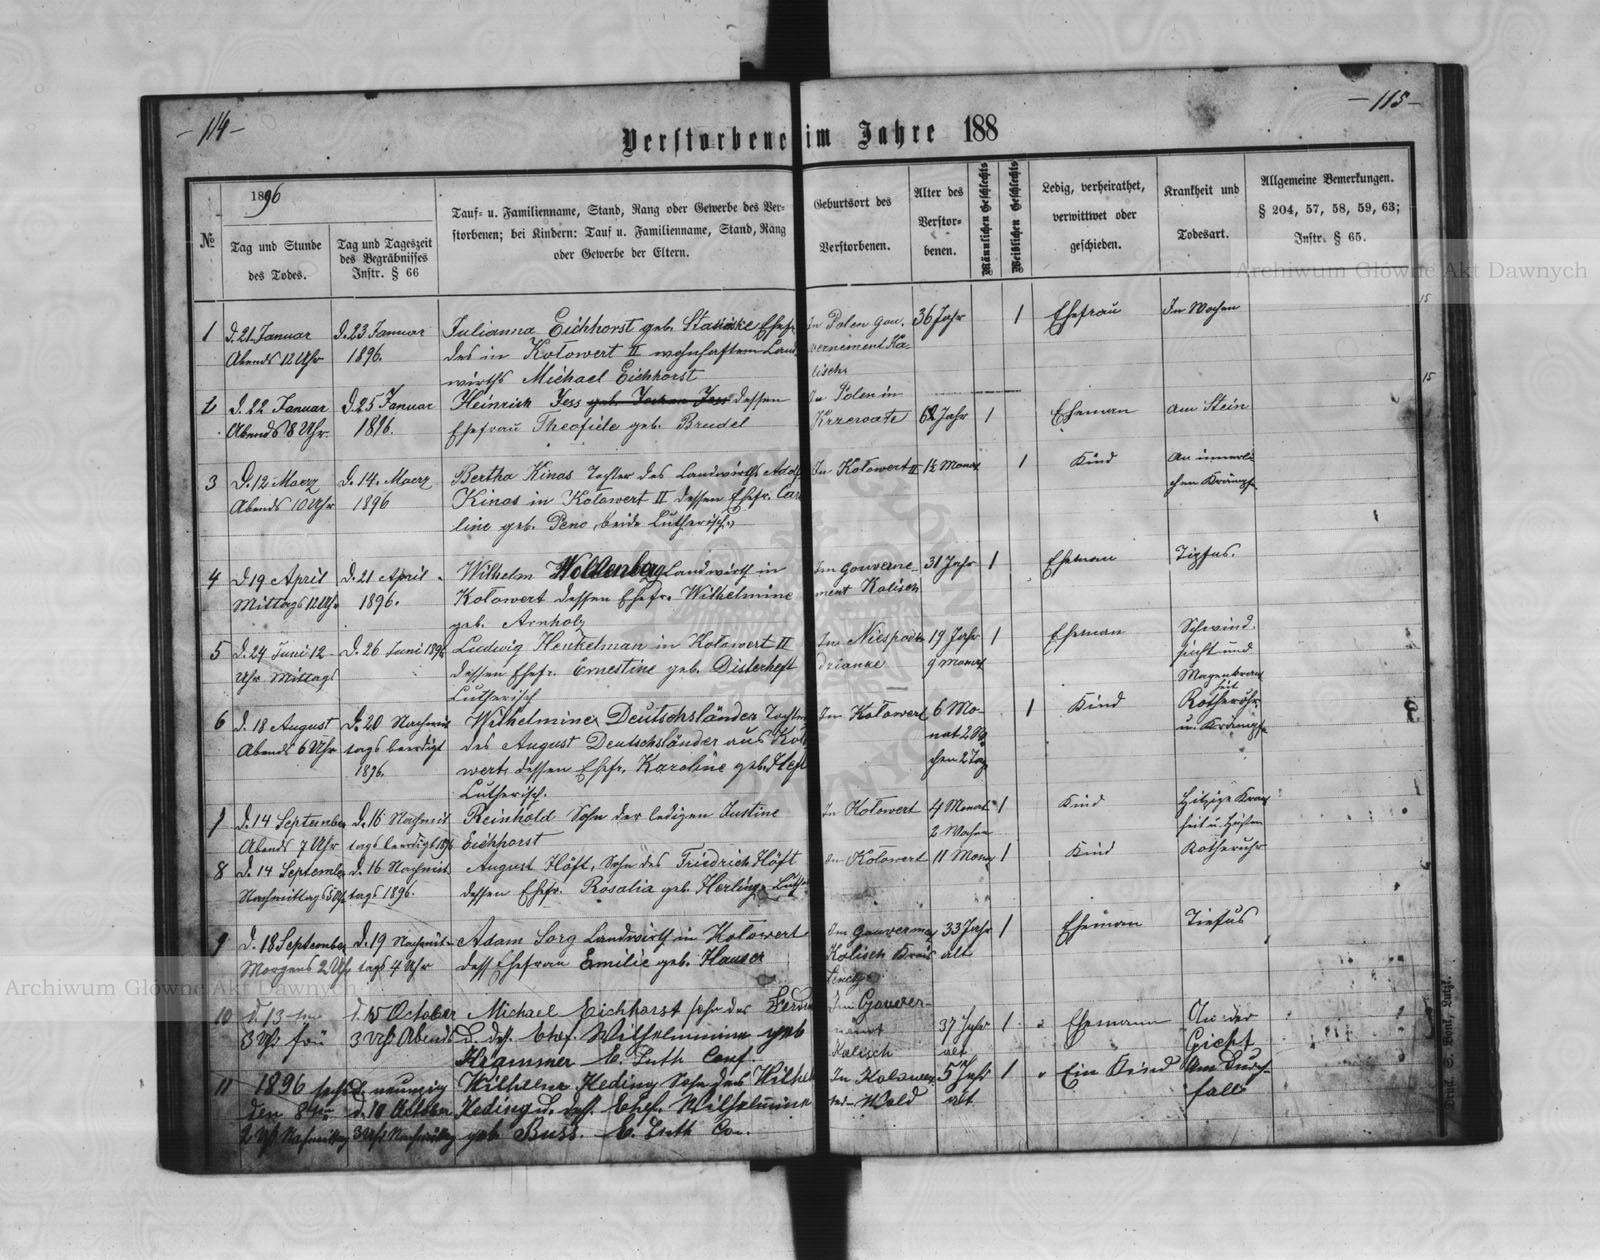 - 114 -
- 115 -
Verstorbene im Jahre 188
1896
№
Tag und Stunde
des Todes.
Tag und Tageszeit
des Begräbnisses
Instr. § 66
Tauf- u. Familienname, Stand, Rang oder Gewerbe des Ver-
storbenen; bei Kindern: Tauf u. Familienname, Stand, Rang
oder Gewerbe der Eltern.
Geburtsort des
Verstorbenen.
Alter des
Verstor-
benen.
Männlichen Geschlechts
Weiblichen Geschlechts
Ledig, verheirathet,
verwittwet oder
geschieden.
Krankheit und
Todesart.
Allgemeine Bemerkungen.
§ 204, 57, 58, 59, 63;
Instr. § 65.
1
d. 21. Januar
Abends 12 Uhr
d. 23 Januar
1896.
Julianna Eichhorst geb. Ehefr.
des in Kołowert II wohnhaften Land
wirths Michael Eichhorst
In Polen Gou-
vernement Ka-
lisch
36 Jahr
1
Ehefrau
In Wochen
2
d. 22 Januar
Abends 8 Uhr.
d. 25 Januar
1896.
Heinrich Jess dessen
Ehefrau Theofiele geb. Brudel
In Polen in
62 Jahr
1
Eheman
am Stein
3
d. 12 Maerz
Abends 10 Uhr
d. 14. Maerz
1896
Bertha Kinas Tochter des Landwirths Adolf
Kinas in Kołowert II dessen Ehefr. Car
line geb. Peno beide Lutherisch.
In Kołowert II
Monat
1
Kind
An innerli
chen Krämpfe
4
d. 19 April
Mittags 12 Uhr
d. 21 April
1896.
Wilhelm Woldenberg Landwirth in
Kołowert dessen Ehefr. Wilhelmine
geb. Arnholz
Im Gouverne-
ment Kalisch
31 Jahr
1
Eheman
Tipfus.
5
d. 24 Juni 12
Uhr Mittags
d. 26 Juni 1896
Ludwig Henkelman in Kołowert II
dessen Ehefr. Ernestine geb. Disterheft
Lutherisch
In Niespod
drianke
19 Jahr
9 Monat
1
Eheman
Schwind-
sucht und
Magenkrank
heit
6
d. 18 August
Abends 6 Uhr
d. 20 Nachmit
tags beerdigt
1896.
Wilhelmine Deutschländer Tochter
des August Deutschländer aus Koło
wert dessen Ehefr. Karoline geb.
Lutherisch.
In Kołowert
6 Mo-
nat 2 Wo
chen 2 Tag
1
Kind
Rotheruhr
u. Krämpfe
7
d. 14 September
Abends 7 Uhr
d. 16 Nachmit
tags beerdigt 1896
Reinhold Sohn der ledigen Justine
Eichhorst
In Kołowert
4 Monat
2 Wochen
1
Kind
Hitzige Krank
heit u. Husten
8
d. 14 September
Nachmittags 5 Uhr
d. 16 Nachmit
tags 1896.
August Höft, Sohn des Friedrich Höft
dessen Ehefr. Rosalia geb. Herling Luth.
In Kołowert
11 Monat
1
Kind
Rotheruhr
9
d. 18 September
Morgens 2 Uhr
d. 19 Nachmit-
tags 4 Uhr
Adam Sorg Landwirth in Kołowert
dess Ehefrau Emilie geb. Hauser
Im Gouvernement
Kalisch Kreis
33 Jahr
alt
1
Eheman
Tiefus
10
d. 13
3 Uhr früh
d. 15 October
3 Uhr Abends
Michael Eichhorst Sohn des Ferdin
u. des. Ehef. Wilhelmine geb
Krammer E. Luth Conf.
Im Gouver-
nemt
Kalisch
37 Jahr
alt
1
Ehemann
An der
Gicht
11
1896 sechs u. neunzig
den 8ten
2 Uhr Nachmittag
d. 10 October
3 Uhr Nachmittag
Wilhelm Heding Sohn des Wilhel
Heding u. des. Ehef. Wilhelmine
geb Buss. E. Luth Con.
In Kolower
ter-Wald
5 Jahr
alt
1
Ein Kind
Am Durch-
fall
Archiwum Główne Akt Dawnych
Archiwum Główne Akt Dawnych